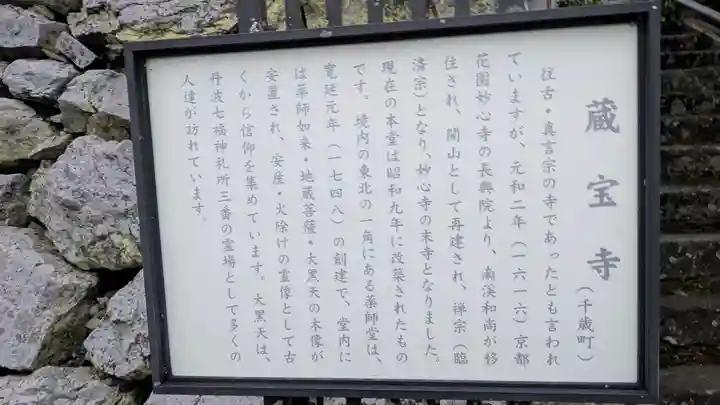 蔵宝寺
（千歳町）
往古・真言宗の寺であったとも言われ
ていますが、元和二年（一六一六）京都
花園妙心寺の長興院より、南溪和尚が移
住され、開山として再建され、禅宗（臨
済宗）となり、妙心寺の末寺となりました。
現在の本堂は昭和九年に改築されたもの
です。境内の東北の一角にある薬師堂は、
寛延元年（一七四八）の創建で、堂内に
は薬師如来・地蔵菩薩・大黒天の木像が
安置され、安産・火除けの霊像として古
くから信仰を集めています。大黒天は、
丹波七福神札所三番の霊場として多くの
人達が訪れています。